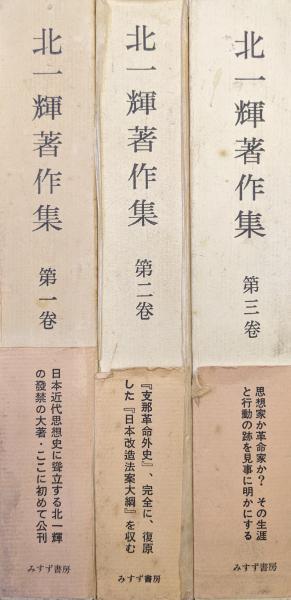 北一輝著作集
第一卷
日本近代思想史に聳立する北一輝
の發禁の大著・ここに初めて公刊
みすず書房
北一輝著作集
第二卷
『支那革命外史』、完全に、復原
した『日本改造法案大綱』を収む
みすず書房
北一輝著作集
第三卷
思想家か革命家か? その生涯
と行動の跡を見事に明かにする
みすず書房